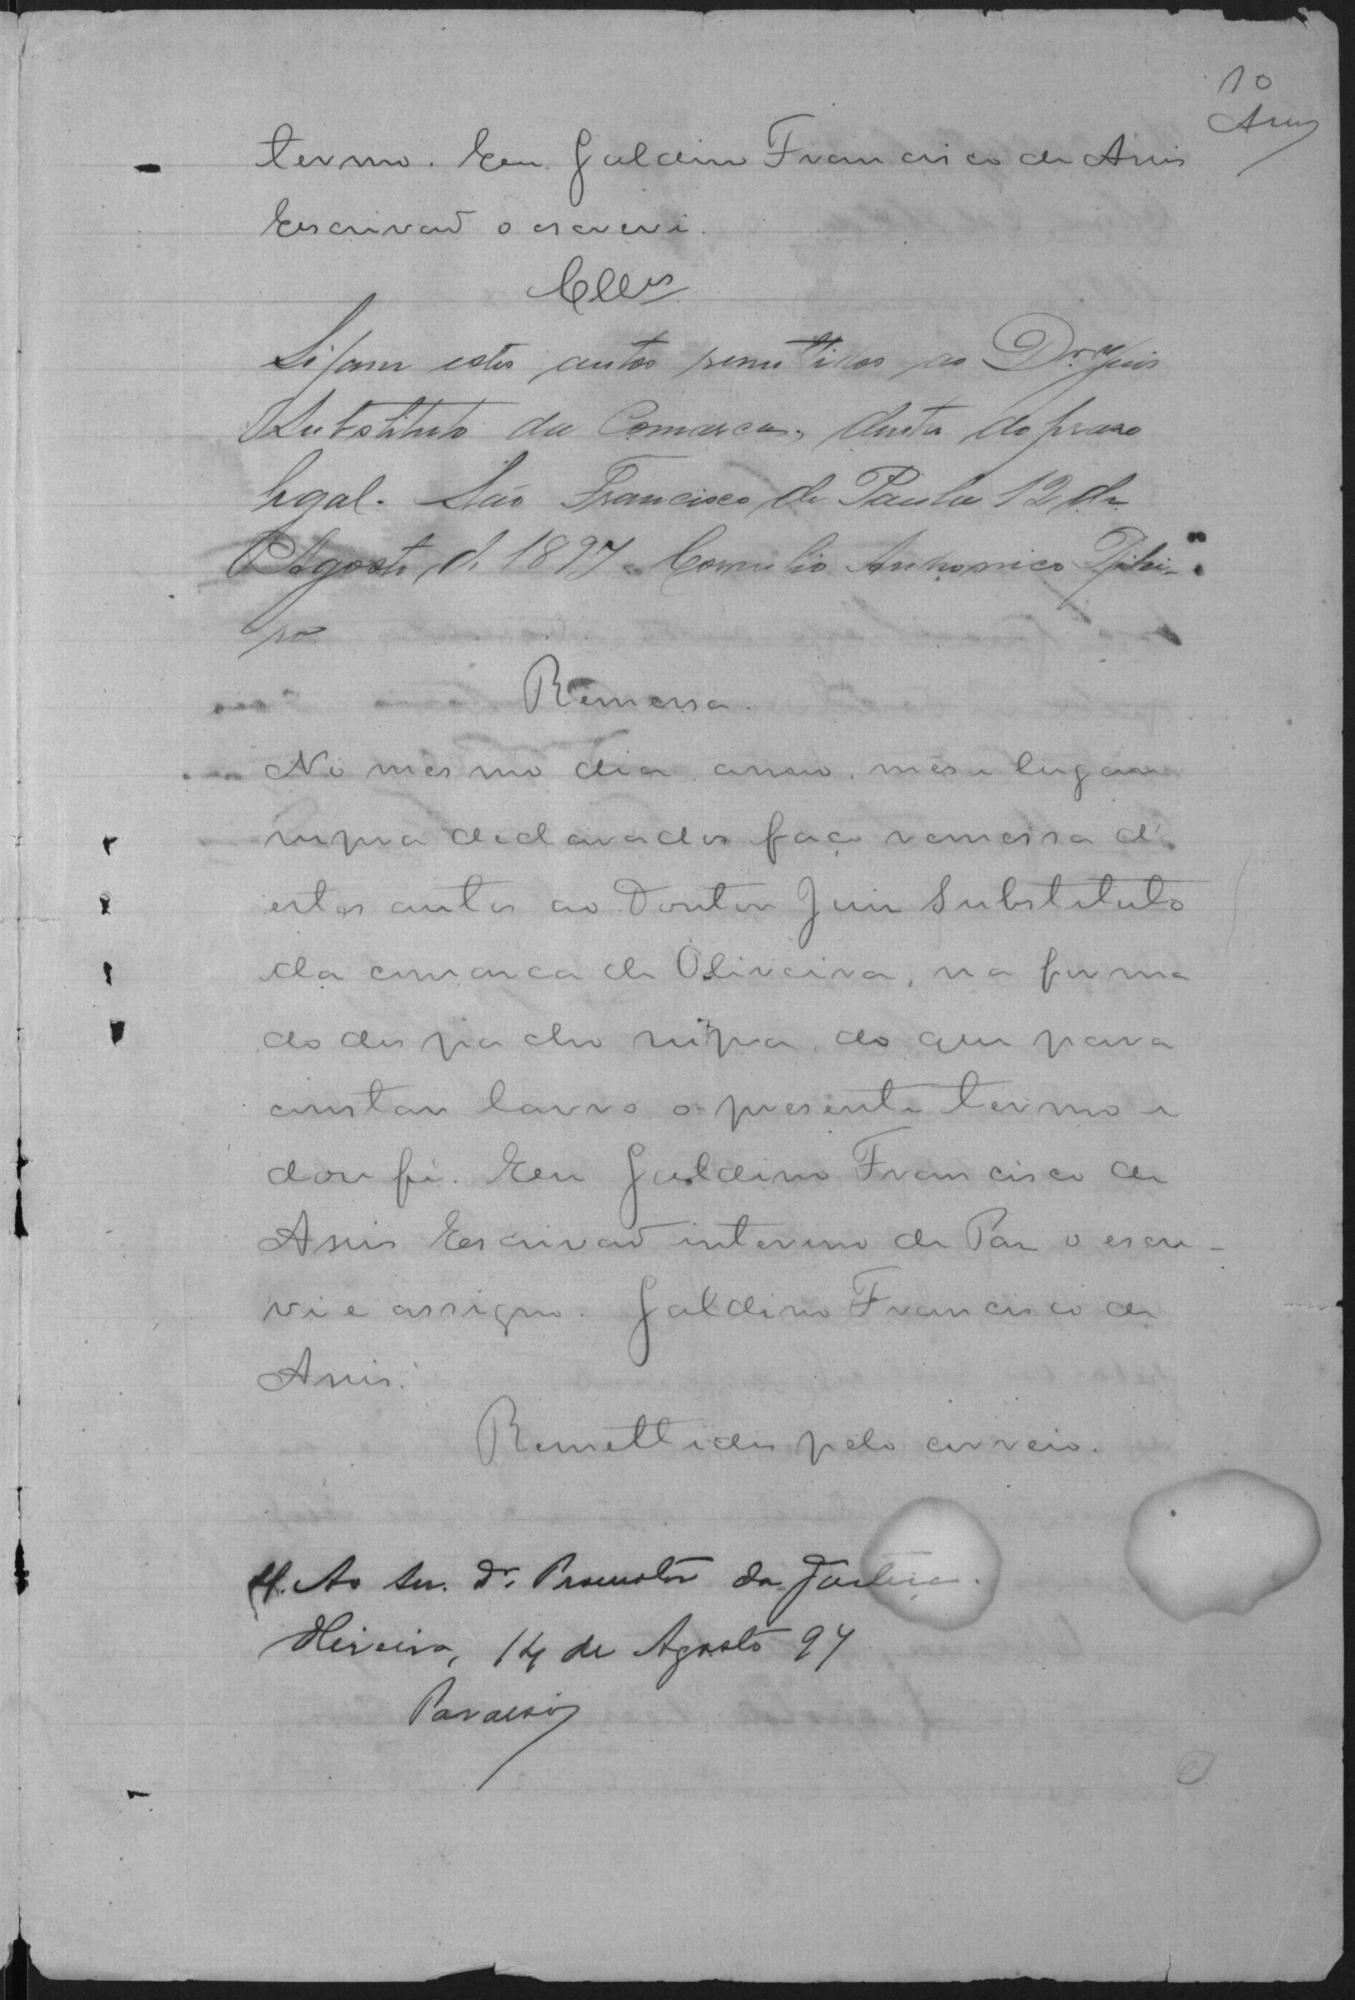 10
Assis
termo. Eu Galdino Francisco de Assis
Escrivaõ o escrevi.
Cllºs
Sejam estes autos remettidos ao Dr. Juis
Substituto da Comarca, dentro do praso
legal. São Francisco de Paula 12 de
Agosto de 1897. Cornelio Anthonico
Remessa.
No mesmo dia, anno, mes e lugar
supra declarados faço remessa d'
estes autos ao Doutor Juiz Substituto
da comarca de Oliveira, na forma
do despacho supra, do que para
constar lavro o presente termo e
dou fé. Eu Galdino Francisco de
Assis Escrivaõ interino de Paz o escre-
vi e assigno. Galdino Francisco de
Assis.
Remettidos pelo correio.
Ao Sr. Dr. Promotor da Justiça.
Oliveira, 14 de Agosto 97